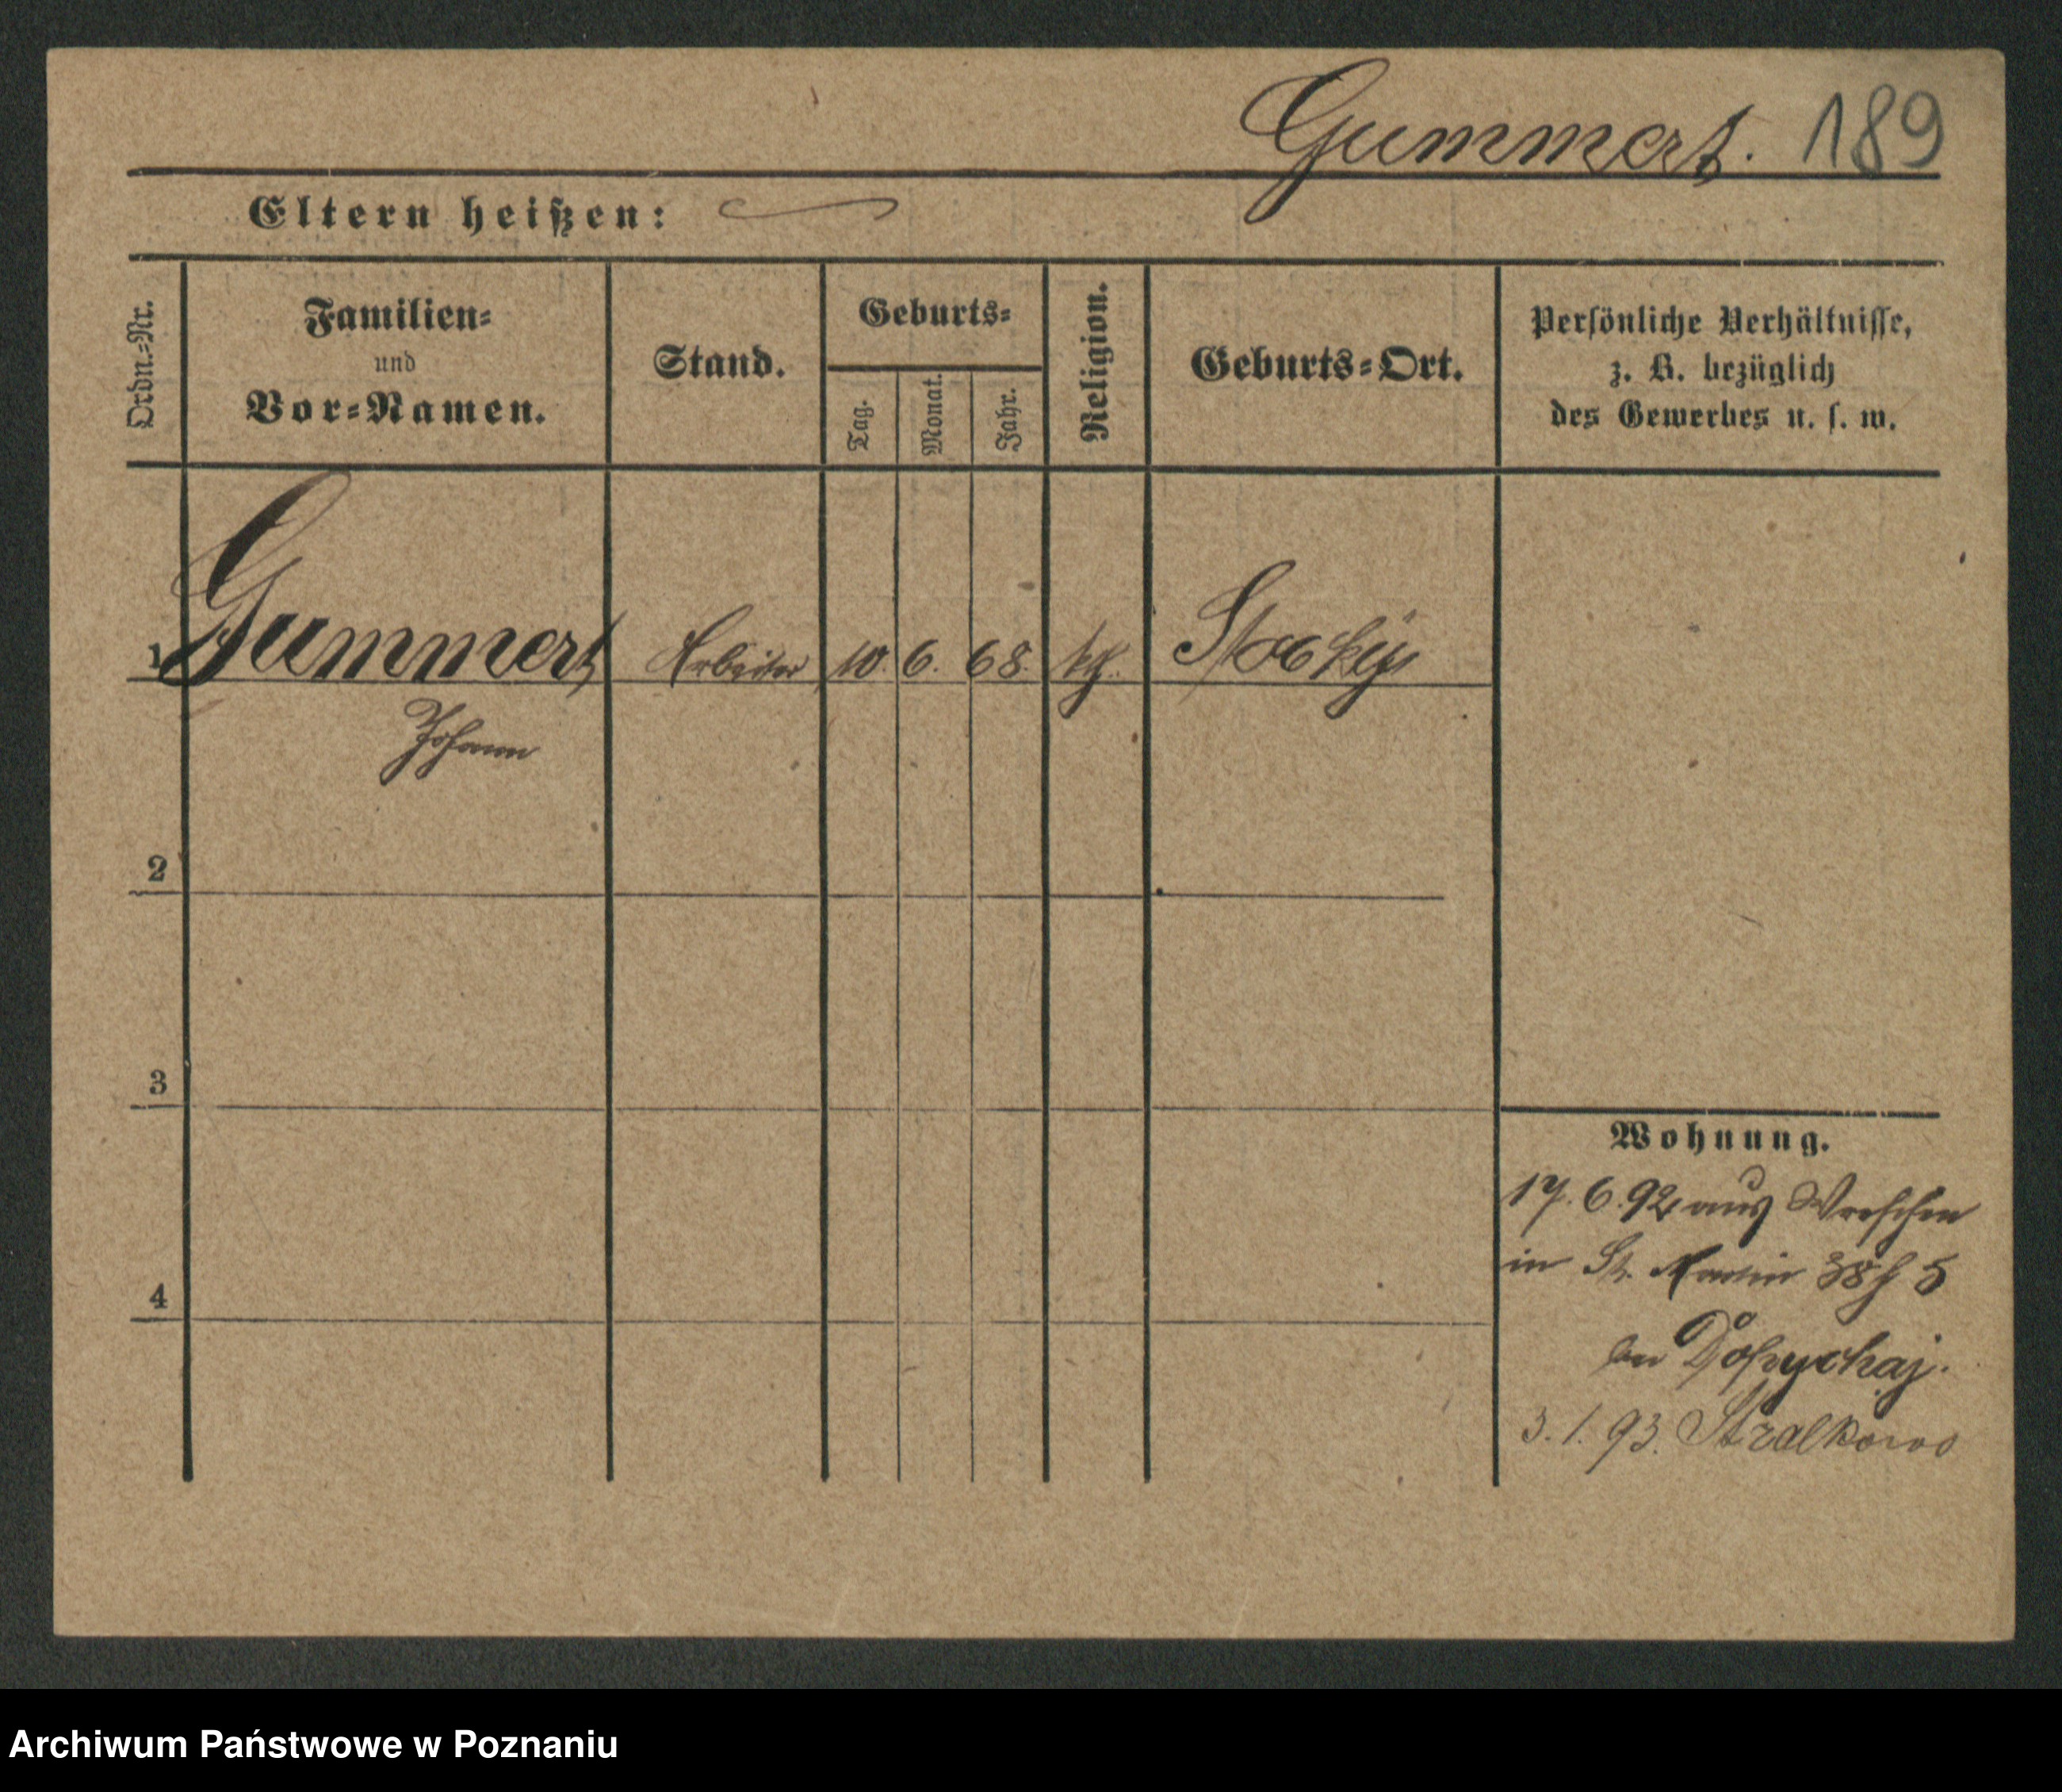 Gummert. 189
Eltern heißen:
Ordn.-Nr.
Familien-
und
Vor-Namen.
Stand.
Geburts-
Tag.
Monat.
Jahr.
Religion.
Geburts-Ort.
Persönliche Verhältnisse,
z. B. bezüglich
des Gewerbes u. s. w.
1 Gummert Arbeiter 10. 6. 68. kth.
Johann
2
3
4
Wohnung.
17. 6. 92 aus Wreschen
in St. Martin 38
bei
3. 1. 93. Stralkowo
Archiwum Państwowe w Poznaniu